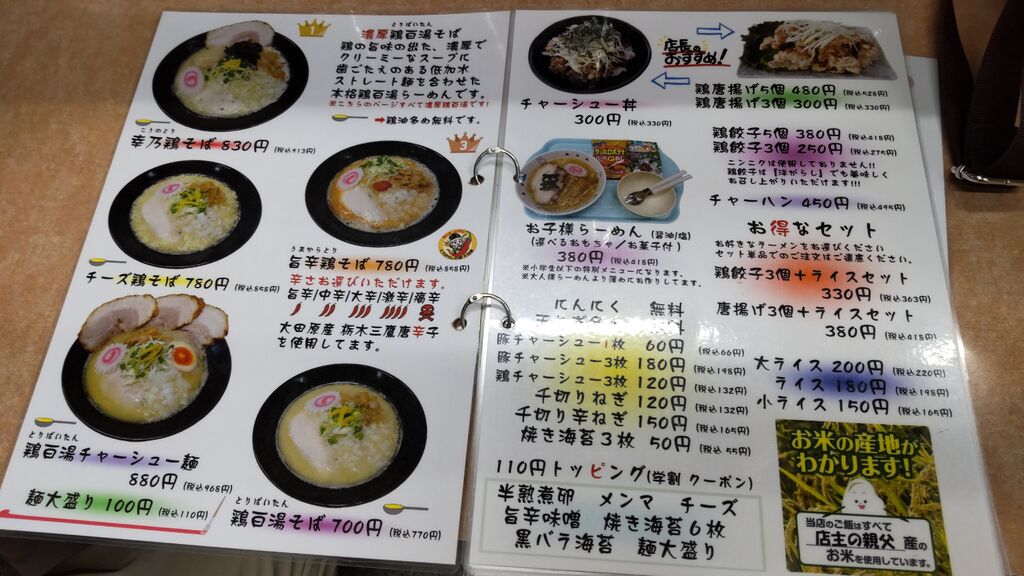 1
とりぱいたん
濃厚鶏百湯そば
鶏の旨味の出た、濃厚で
クリーミーなスープに
歯ごたえのある低加水
ストレート麺を合わせた
本格鶏百湯らーめんです。
※こちらのページすべて濃厚鶏百湯です!
➡鶏油多め無料です。
こうのとり
幸乃鶏そば 830円 (税込913円)
3
チーズ鶏そば 780円 (税込858円)
うまからとり
旨辛鶏そば 780円 (税込858円)
辛さお選びいただけます。
旨辛/中辛/大辛/激辛/痛辛
大田原産 栃木三鷹唐辛子
を使用してます。
とりぱいたん
鶏百湯チャーシュー麺
880円 (税込968円)
麺大盛り 100円 (税込110円)
とりぱいたん
鶏百湯そば 700円 (税込770円)
店長の
おすすめ!
チャーシュー丼
300円 (税込330円)
鶏唐揚げ5個 480円 (税込528円)
鶏唐揚げ3個 300円 (税込330円)
鶏餃子5個 380円 (税込418円)
鶏餃子3個 250円 (税込275円)
ニンニクは使用しておりません!!
鶏餃子は『洋がらし』でも美味しく
お召し上がりいただけます!!!
チャーハン 450円 (税込495円)
お子様らーめん (醤油/塩)
(選べるおもちゃ/お菓子付)
380円 (税込418円)
※小学生以下の特別メニューになります。
※大人様らーめんより薄めにお作りしてます。
お得なセット
お好きなラーメンをお選びください
セット単品でのご注文はご遠慮ください。
鶏餃子3個+ライスセット
330円 (税込363円)
唐揚げ3個+ライスセット
380円 (税込418円)
にんにく 無料
豚チャーシュー1枚 60円 (税込66円)
豚チャーシュー3枚 180円 (税込198円)
鶏チャーシュー3枚 120円 (税込132円)
千切りねぎ 120円 (税込132円)
千切り辛ねぎ 150円 (税込165円)
焼き海苔3枚 50円 (税込 55円)
大ライス 200円 (税込220円)
ライス 180円 (税込198円)
小ライス 150円 (税込165円)
110円トッピング(学割 クーポン)
半熟煮卵 メンマ チーズ
旨辛味噌 焼き海苔6枚
黒バラ海苔 麺大盛り
お米の産地が
わかります!
当店のご飯はすべて
店主の親父 産の
お米を使用しています。